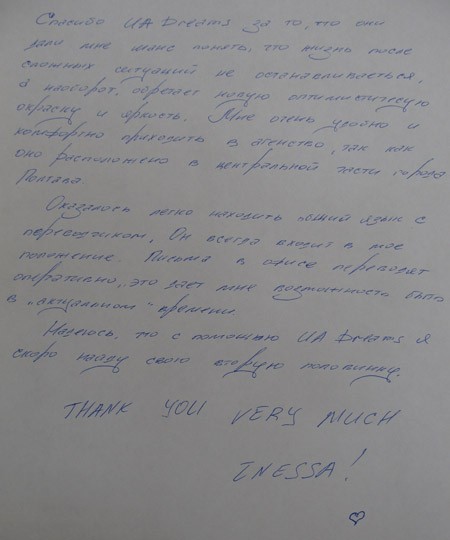 Спасибо UA Dreams за то, что они
дали мне шанс понять, что жизнь после
сложных ситуаций не останавливается,
а наоборот, обретает новую оптимистическую
окраску и яркость. Мне очень удобно и
комфортно приходить в агенство, так как
оно расположено в центральной части города
Полтава.
Оказалось легко находить общий язык с
переводчиком, Он всегда входит в мое
положение. Письма в офисе переводят
оперативно, это дает мне возможность быть
в „актуальном" времени
Надеюсь, что с помощью UA Dreams я
скоро найду свою вторую половинку.
THANK YOU VERY MUCH
INESSA!